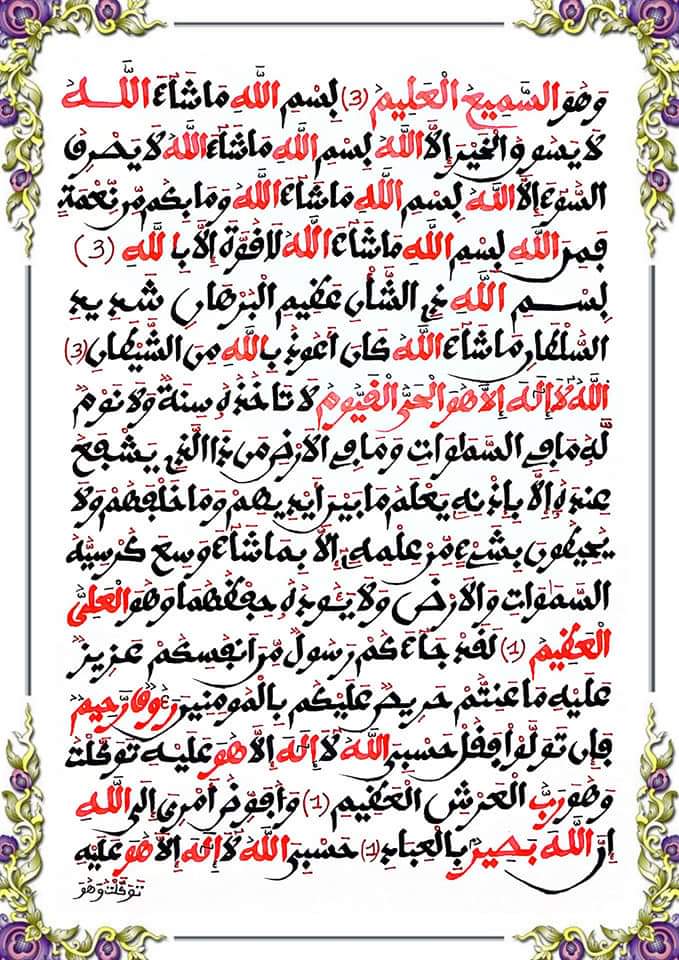 وَهُوَ السَّمِيعُ الْعَلِيمُ (3) بِسْمِ اللَّهِ مَا شَاءَ اللَّهُ
لَا يَسُوقُ الْخَيْرَ إِلَّا اللَّهُ بِسْمِ اللَّهِ مَا شَاءَ اللَّهُ لَا يَصْرِفُ
السُّوءَ إِلَّا اللَّهُ بِسْمِ اللَّهِ مَا شَاءَ اللَّهُ وَمَا بِكُم مِّن نِّعْمَةٍ
فَمِنَ اللَّهِ بِسْمِ اللَّهِ مَا شَاءَ اللَّهُ لَا قُوَّةَ إِلَّا بِاللَّهِ (3)
بِسْمِ اللَّهِ ذِي الشَّأْنِ عَظِيمِ الْبُرْهَانِ شَدِيدِ
السُّلْطَانِ مَا شَاءَ اللَّهُ كَانَ أَعُوذُ بِاللَّهِ مِنَ الشَّيْطَانِ (3)
اللَّهُ لَا إِلَٰهَ إِلَّا هُوَ الْحَيُّ الْقَيُّومُ لَا تَأْخُذُهُ سِنَةٌ وَلَا نَوْمٌ
لَّهُ مَا فِي السَّمَٰوَاتِ وَمَا فِي الْأَرْضِ مَن ذَا الَّذِي يَشْفَعُ
عِندَهُ إِلَّا بِإِذْنِهِ يَعْلَمُ مَا بَيْنَ أَيْدِيهِمْ وَمَا خَلْفَهُمْ وَلَا
يُحِيطُونَ بِشَيْءٍ مِّنْ عِلْمِهِ إِلَّا بِمَا شَاءَ وَسِعَ كُرْسِيُّهُ
السَّمَٰوَاتِ وَالْأَرْضَ وَلَا يَئُودُهُ حِفْظُهُمَا وَهُوَ الْعَلِيُّ
الْعَظِيمُ (1) لَقَدْ جَاءَكُمْ رَسُولٌ مِّنْ أَنفُسِكُمْ عَزِيزٌ
عَلَيْهِ مَا عَنِتُّمْ حَرِيصٌ عَلَيْكُم بِالْمُومِنِينَ رَءُوفٌ رَّحِيمٌ
فَإِن تَوَلَّوْا فَقُلْ حَسْبِيَ اللَّهُ لَا إِلَٰهَ إِلَّا هُوَ عَلَيْهِ تَوَكَّلْتُ
وَهُوَ رَبُّ الْعَرْشِ الْعَظِيمِ (1) وَأُفَوِّضُ أَمْرِي إِلَى اللَّهِ
إِنَّ اللَّهَ بَصِيرٌ بِالْعِبَادِ (1) حَسْبِيَ اللَّهُ لَا إِلَٰهَ إِلَّا هُوَ عَلَيْهِ
تَوَكَّلْتُ وَهُوَ